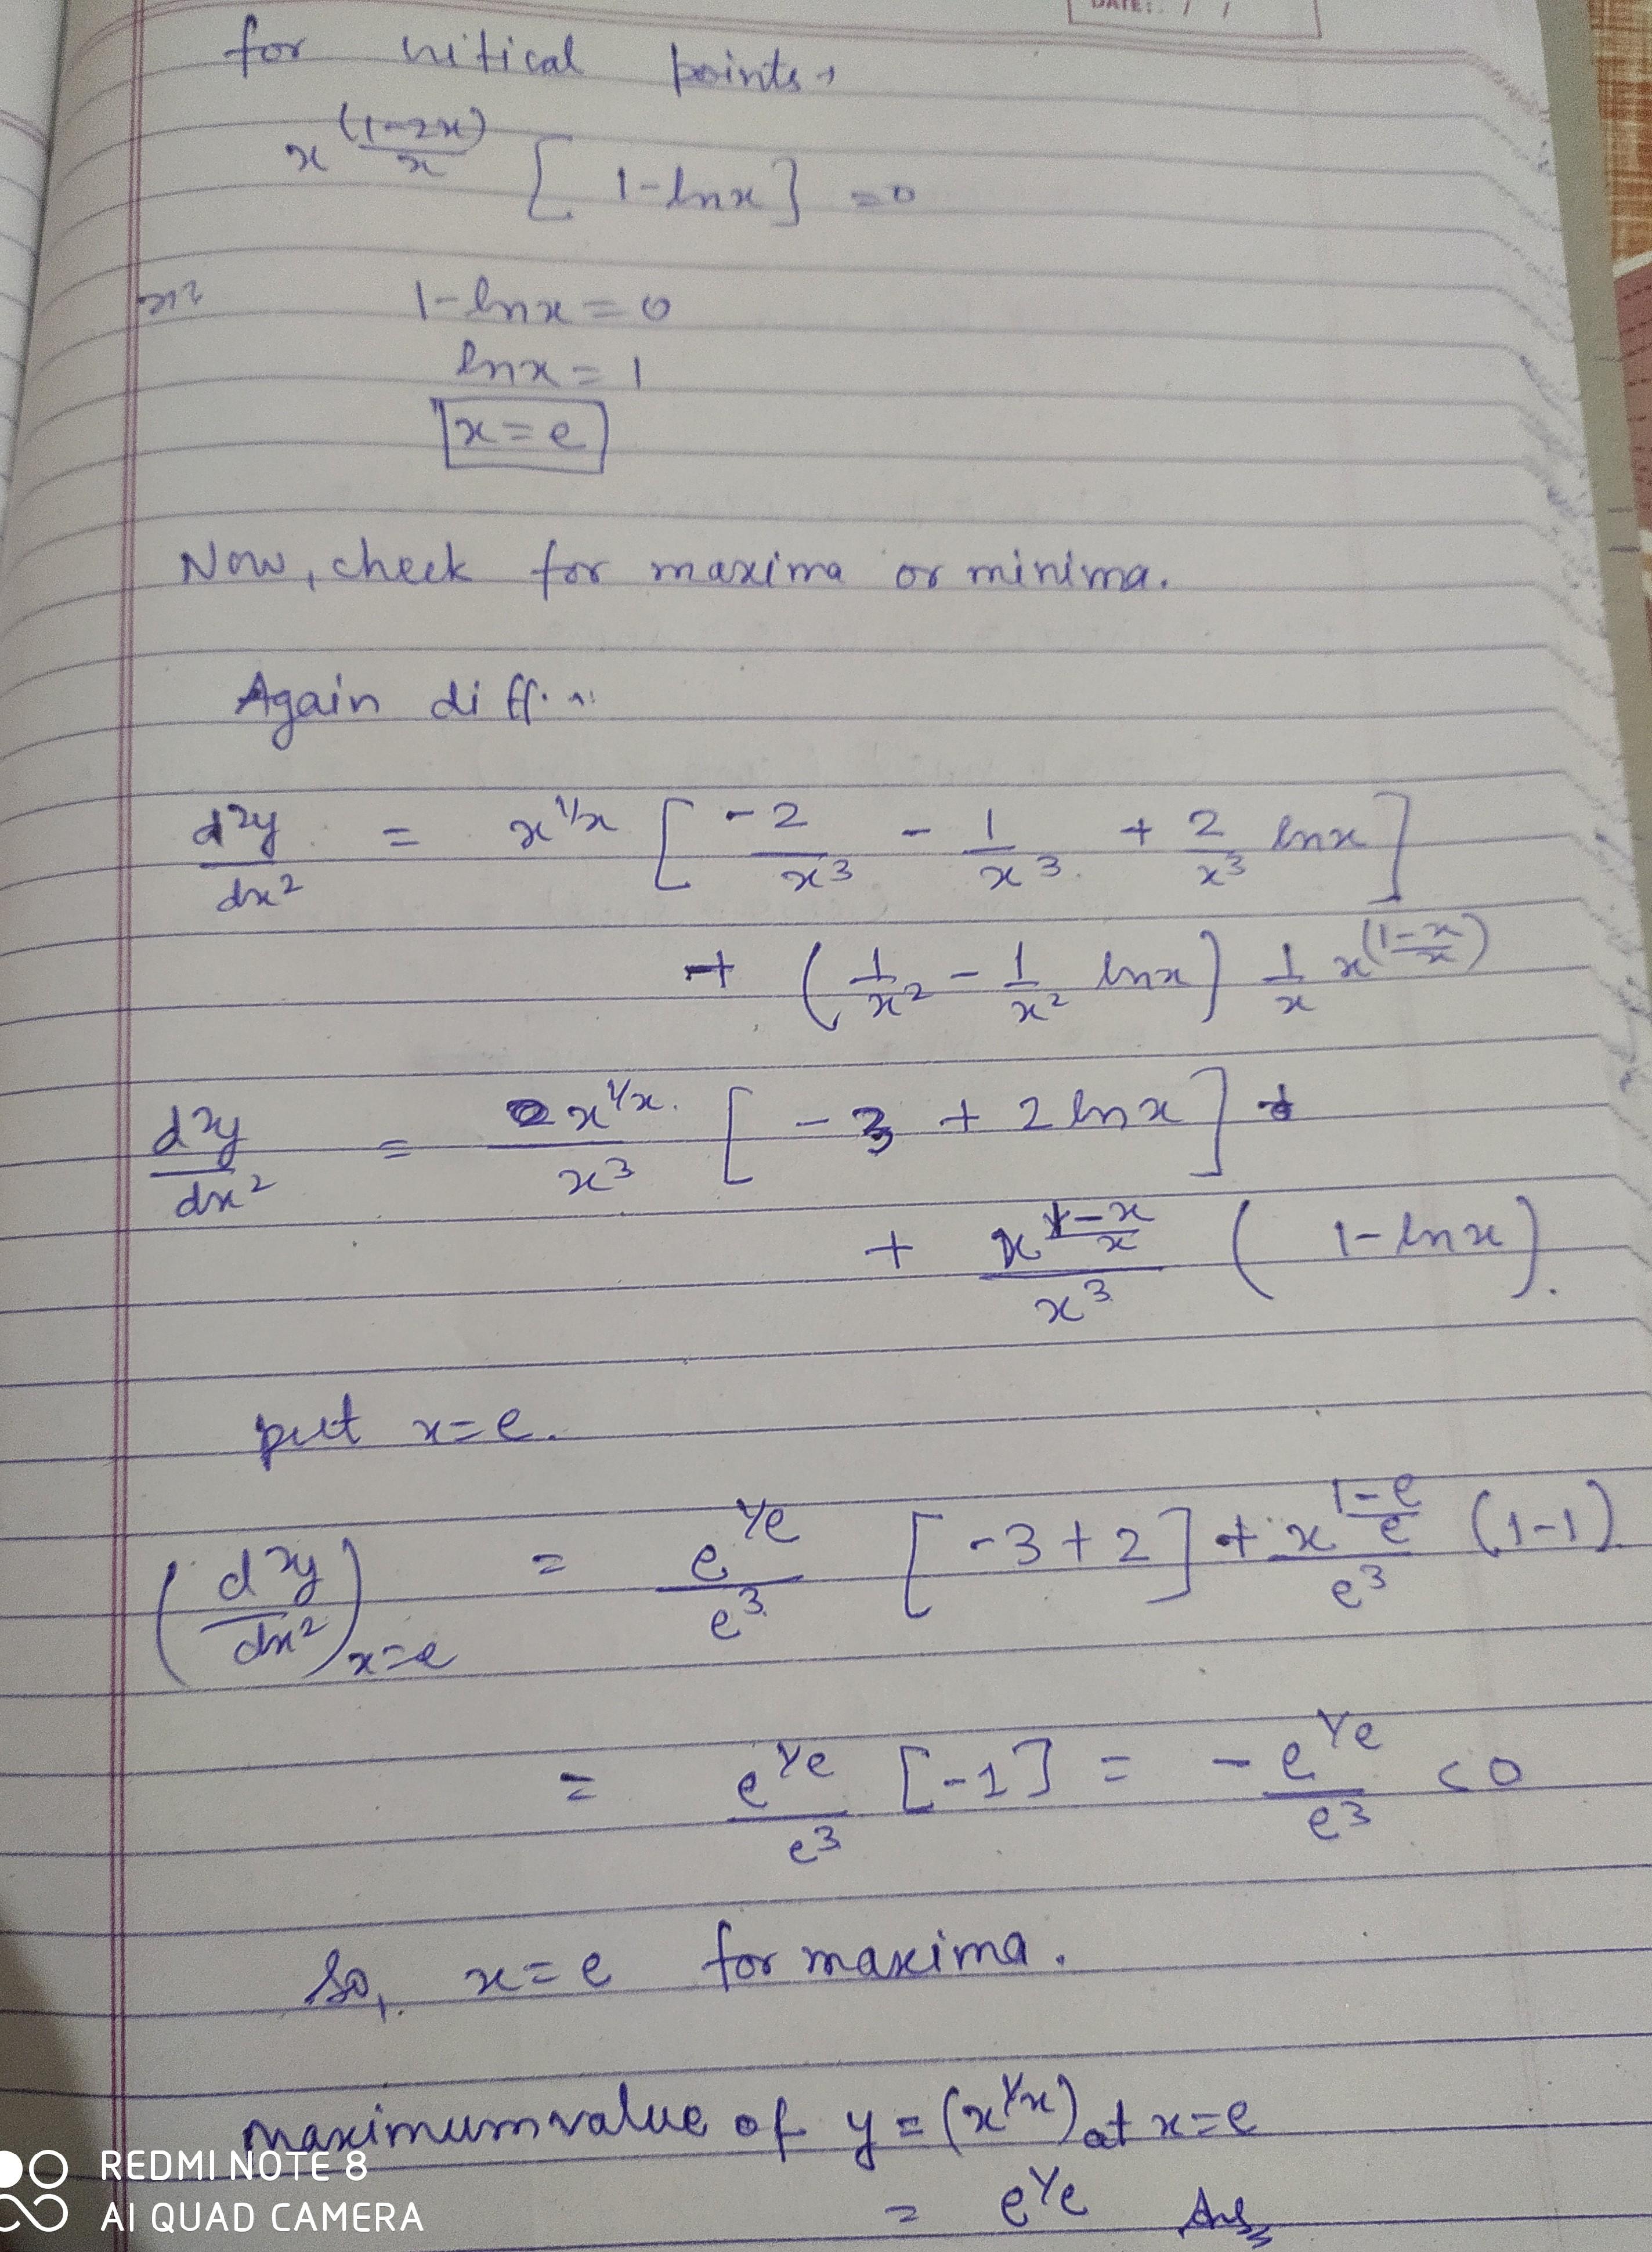 DATE: / /
for critical points,
x^((1-2x)/x) [ 1-lnx ] =0
1-lnx = 0
lnx = 1
x = e
Now, check for maxima or minima.
Again diff.
d²y/dx² = x^(1/x) [ -2/x³ - 1/x³ + 2/x³ lnx ]
+ ( 1/x² - 1/x² lnx ) 1/x x^((1-x)/x)
d²y/dx² = x^(1/x)/x³ [ -3 + 2lnx ] +
+ x^((1-x)/x)/x³ ( 1-lnx ).
put x=e.
(d²y/dx²)x=e = e^(1/e)/e³ [ -3+2 ] + x^((1-e)/e)/e³ (1-1)
= e^(1/e)/e³ [-1] = -e^(1/e)/e³ <0
So, x=e for maxima.
maximum value of y = (x^(1/x)) at x=e
= e^(1/e) Ans
REDMI NOTE 8
AI QUAD CAMERA